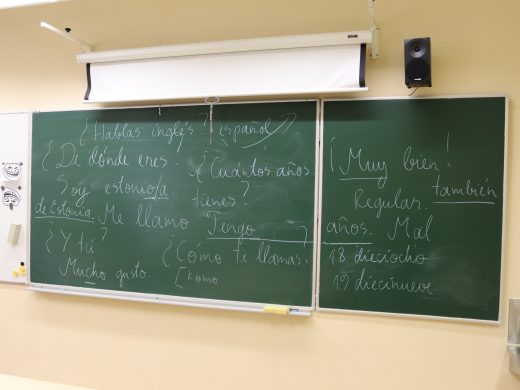 ¿Hablas inglés? español
¿De dónde eres.
¿Cuántos años
Soy estonio/a.
tienes?
de Estonia. Me llamo
Tengo
¿Y tú?
¿Cómo te llamas.
Mucho gusto.
[komo
¡Muy bien!
también
Regular.
años. Mal
18 dieciocho
19 diecinueve